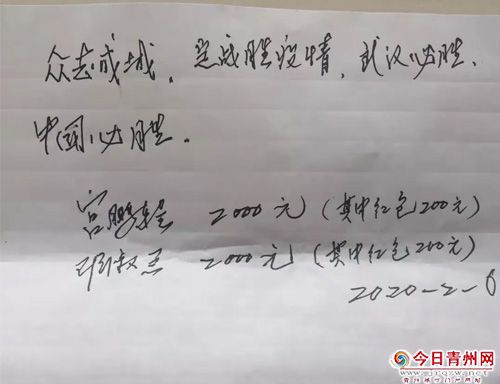 众志成城，共战胜疫情，武汉必胜、
中国必胜。
宫鹏 2000元（其中红包200元）
2000元（其中红包200元）
2020-2-6
今日青州网
www.jrqzw.net